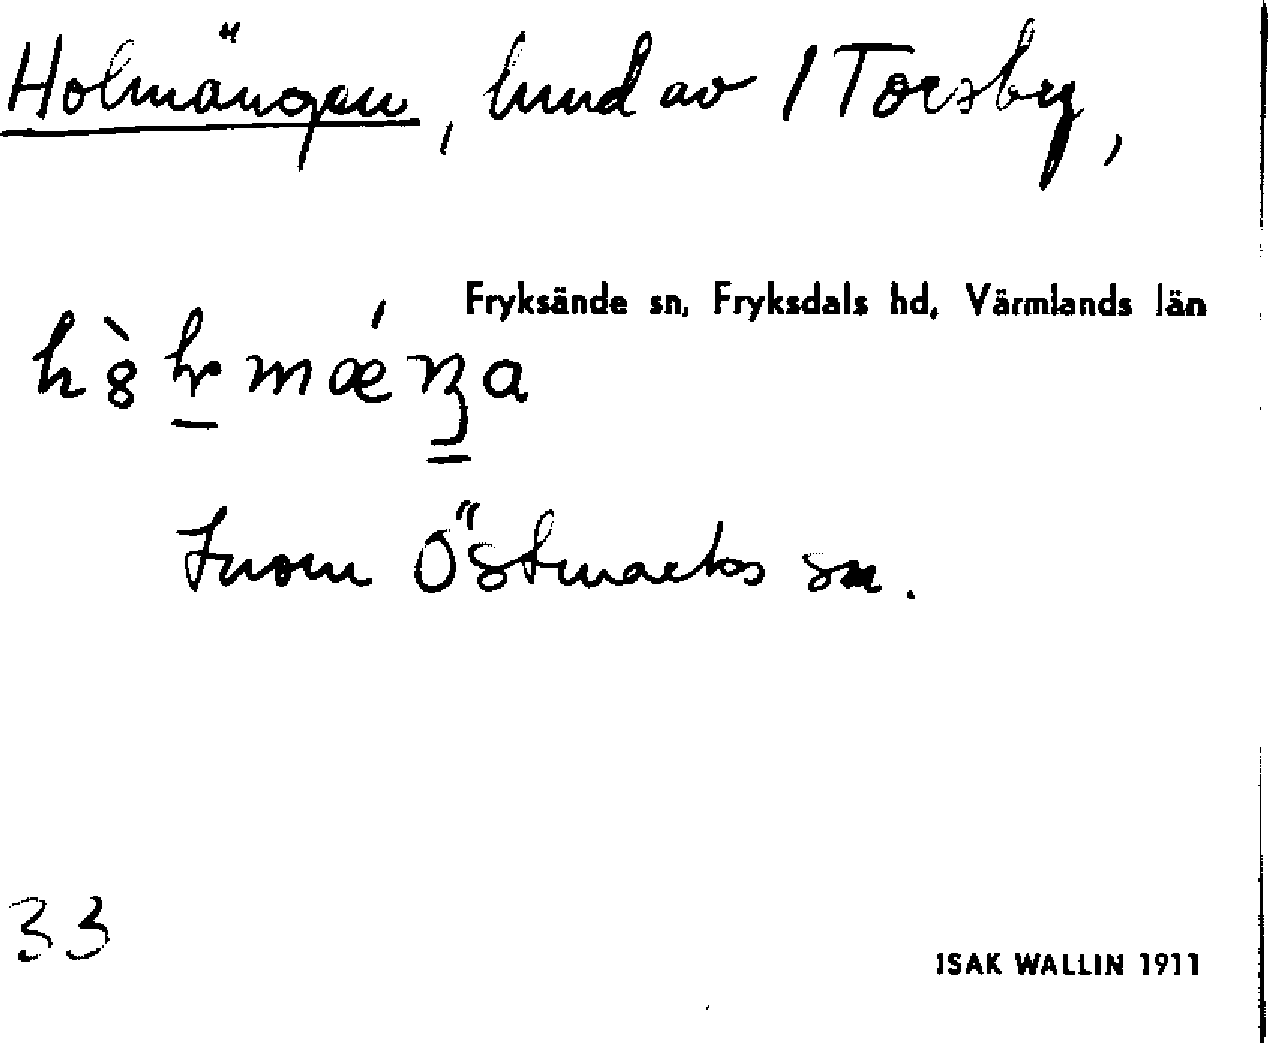 Holmängen, lund av 1 Torsby,
Fryksände sn, Fryksdals hd, Värmlands län
Inom Östmarks sn.
33
ISAK WALLIN 1911